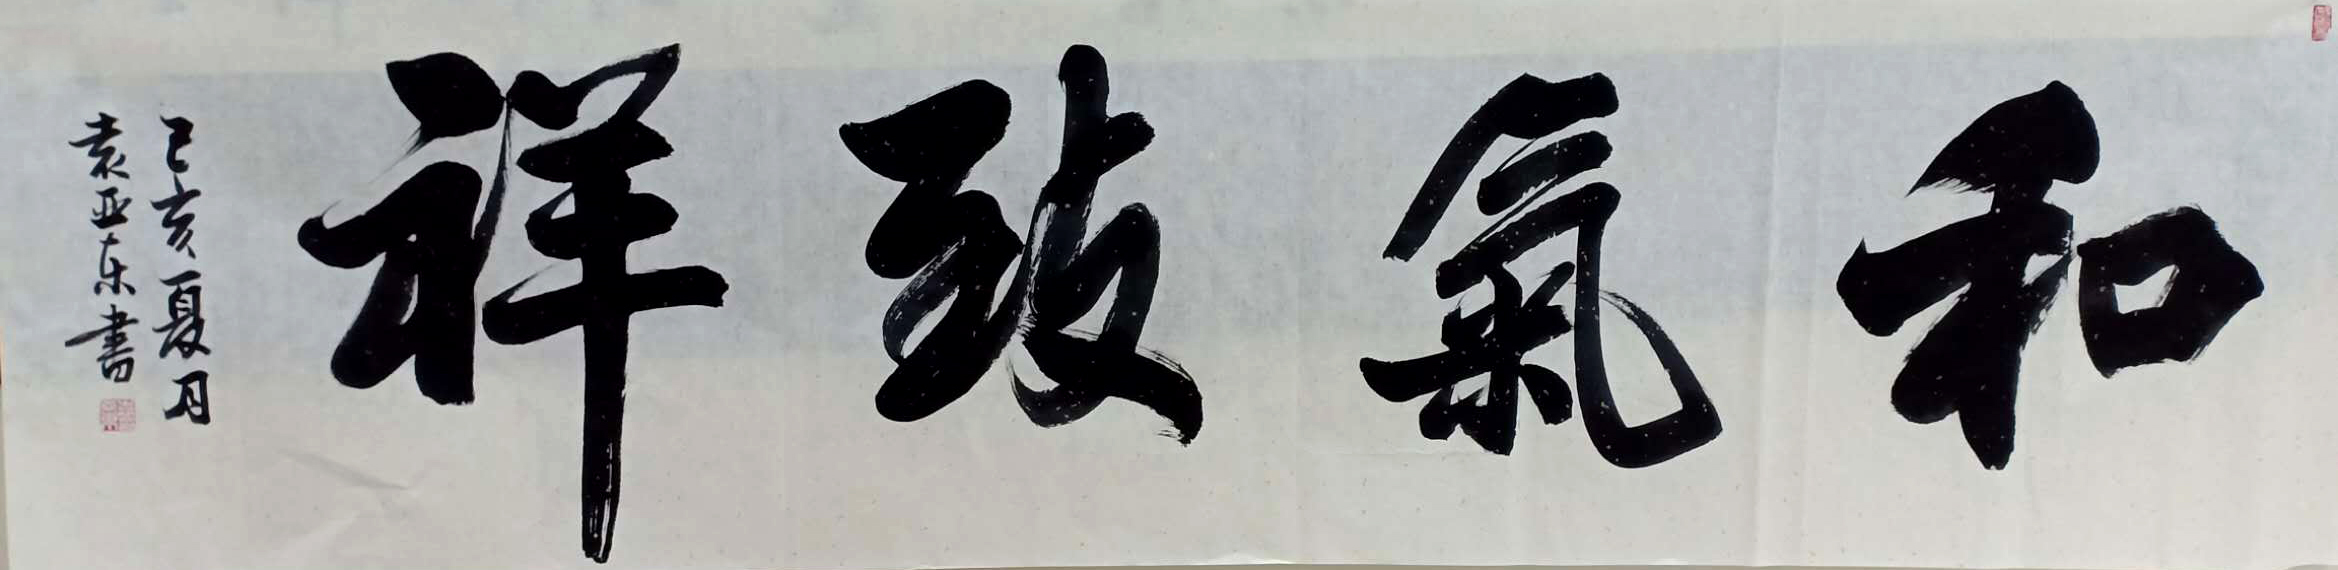 和氣致祥
己亥夏月
袁亚东書